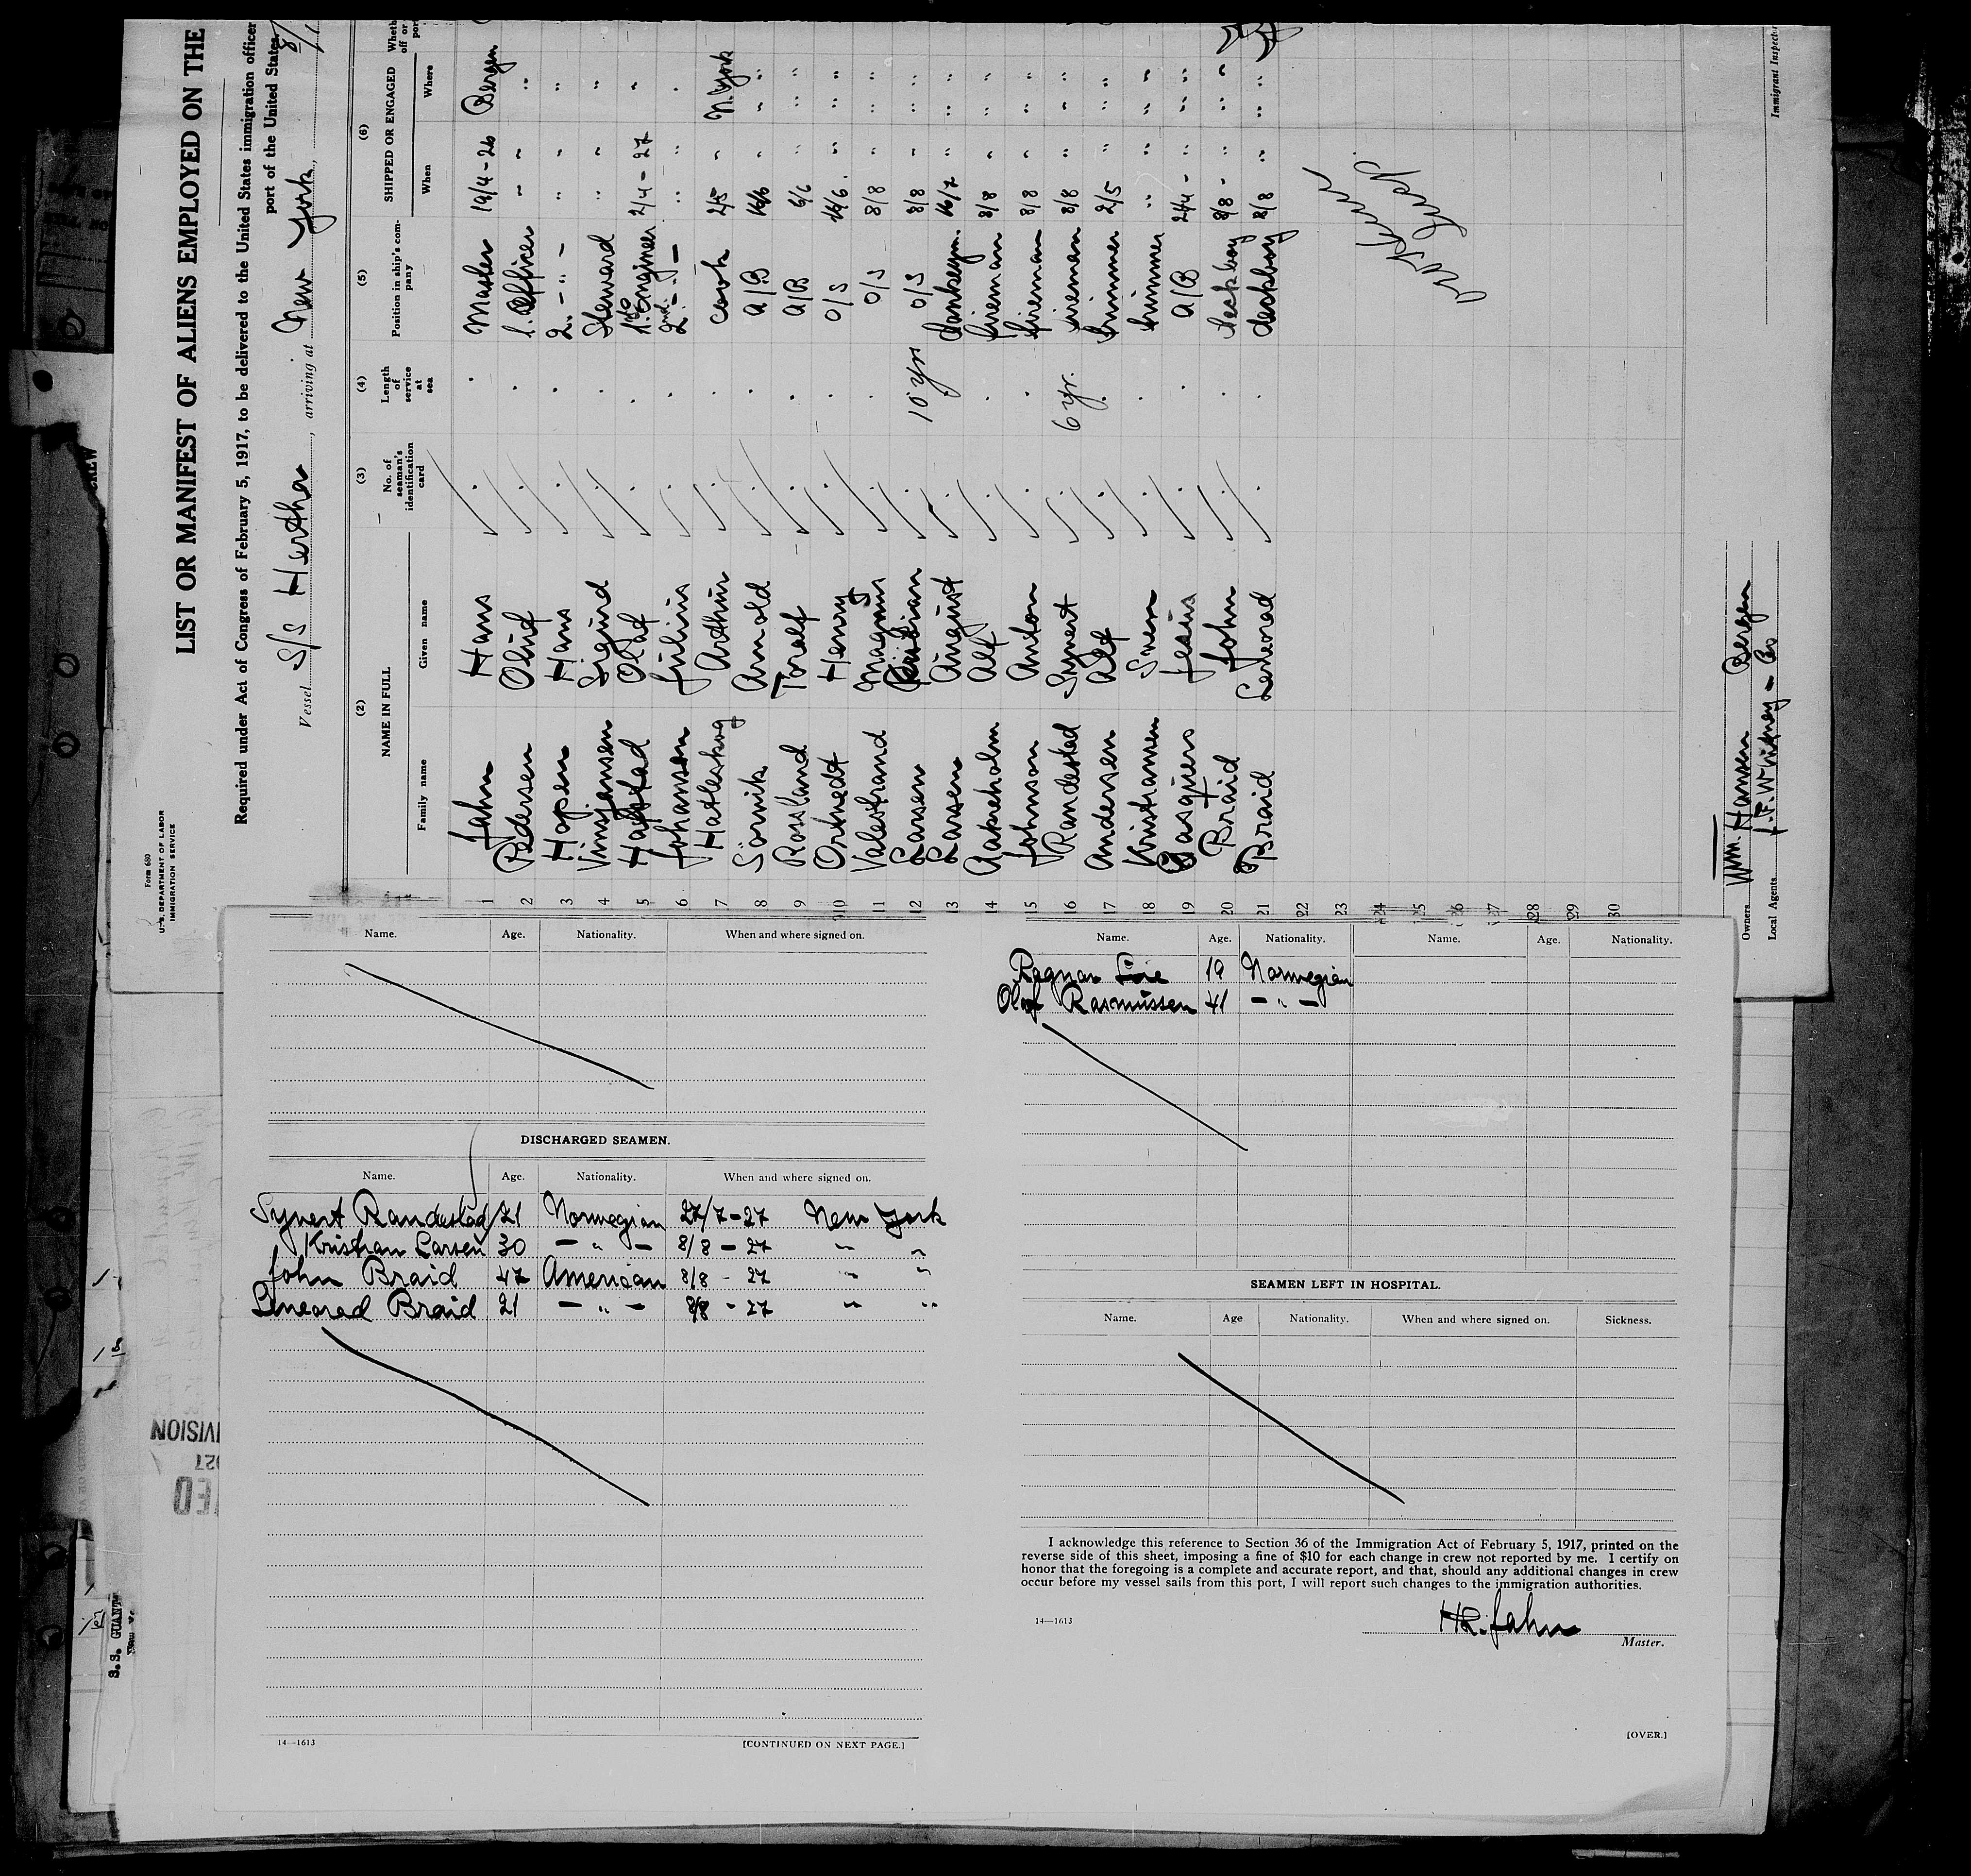 Form 680
U. S. DEPARTMENT OF LABOR
IMMIGRATION SERVICE
LIST OR MANIFEST OF ALIENS EMPLOYED ON THE
Required under Act of Congress of February 5, 1917, to be delivered to the United States immigration officer
port of the United States
Vessel S/S Hertha, arriving at New York,
(2) (3) (4) (5) (6)
NAME IN FULL No. of seaman's identification card Length of service at sea Position in ship's company SHIPPED OR ENGAGED
Family name Given name When Where
1 Jahn Hans Master 19/4-26 Bergen
2 Pedersen Oluf 1. Officer - " "
3 Hopen Hans 2. - " - " " "
4 Vinsjansen Sigurd Steward " " "
5 Olaf 1st Engineer 2/4-27 "
6 Johanssen Julius 2nd - " - " " "
7 Hatleskog Arthur cook 2/5 " N. York
8 Sörvik Arnold A/B 16/6 " " "
9 Rossland Toralf A/B 6/6 " " "
10 Henry O/S 16/6 " " "
11 Valestrand Magnus O/S 8/8 " " "
12 Larsen Kristian 10 yrs O/S 8/8 " " "
13 Larsen August donkeym. 16/7 " " "
14 Aakreholm Alf fireman 8/8 " " "
15 Johnson Anton fireman 8/8 " " "
16 Randestad Synvert 6 yr. fireman 8/8 " " "
17 Andersen Alf trimmer 2/5 " " "
18 Kristiansen Sven trimmer " " " "
19 Jesus A/B 24/4 - " " "
20 Braid John deckboy 8/8 - " " "
21 Braid Leneored deckboy 8/8 " " "
22
23
24
25
26
27
28
29
30
Owners Wm. Hansen Bergen
Local Agents J. F. Whitney & Co
Immigrant Inspector
Name. Age. Nationality. When and where signed on.
DISCHARGED SEAMEN.
Name. Age. Nationality. When and where signed on.
Synvert Randestad 21 Norwegian 27/7-27 New York
Kristian Larsen 30 - " - 8/8 - 27 " "
John Braid 47 American 8/8 - 27 " "
Leneored Braid 21 - " - 8/8 - 27 " "
14—1613 [CONTINUED ON NEXT PAGE.]
Name. Age. Nationality. Name. Age. Nationality.
Ragnar 19 Norwegian
Olaf Rasmussen 41 - " -
SEAMEN LEFT IN HOSPITAL.
Name. Age Nationality. When and where signed on. Sickness.
I acknowledge this reference to Section 36 of the Immigration Act of February 5, 1917, printed on the
reverse side of this sheet, imposing a fine of $10 for each change in crew not reported by me. I certify on
honor that the foregoing is a complete and accurate report, and that, should any additional changes in crew
occur before my vessel sails from this port, I will report such changes to the immigration authorities.
14—1613
HR. Jahn
Master.
[OVER.]
S. S. GUANT